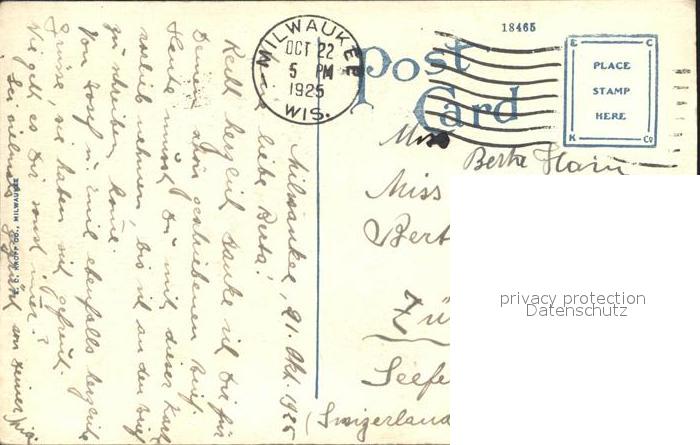 Milwaukee, 21. Okt. 1925
liebe Berta!
Recht herzlich danke ich Dir für
Deinen schön geschriebenen Brief.
Heute musst Du mit dieser Karte
vorlieb nehmen, bis ich an den Brief
zu schreiben komme.
Von Josef u. Emil ebenfalls herzliche
Grüsse, sie haben sich gefreut.
Wie geht es Dir sonst immer?
Sei vielmals gegrüsst von Deiner
E. C. KROPP CO., MILWAUKEE
MILWAUKEE
OCT 22
5 PM
1925
WIS.
18465
Post
Card
E C
PLACE
STAMP
HERE
K Co
Miss Berta
Miss
Bert
Zü
Seefe
(Switzerland
privacy protection
Datenschutz